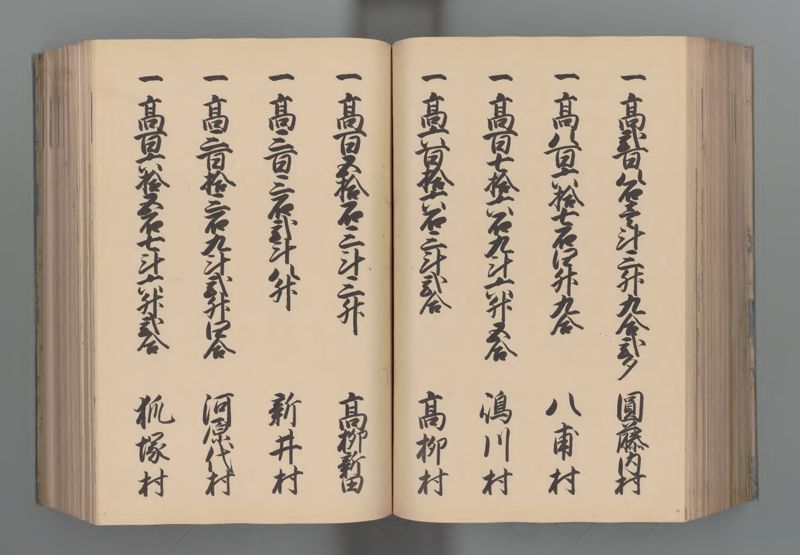 一高弐百八石壱斗三升九合弐夕 圓藤内村
一高八百六拾七石四升九合 八甫村
一高百七拾六石九斗六升五合 鷲川村
一高六百拾六石三斗弐合 高柳村
一高百五拾石三斗三升 高柳新田
一高三百三石弐斗八升 新井村
一高三百拾三石九斗弐升四合 河原代村
一高百六拾五石七斗六升弐合 狐塚村